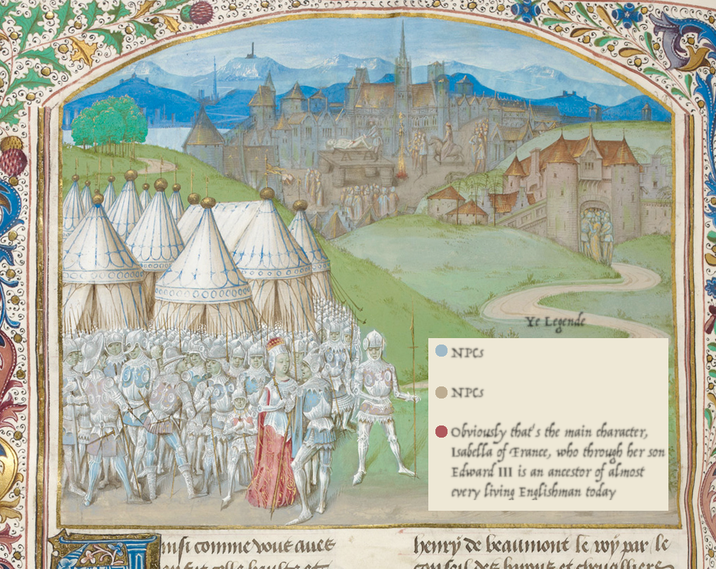 Ye Legende
NPCs
NPCs
Obviously that's the main character,
Isabella of France, who through her son
Edward III is an ancestor of almost
every living Englishman today
insi comme vous avez
henry de beaumont le roy par le
conseil des barons et chevalliers